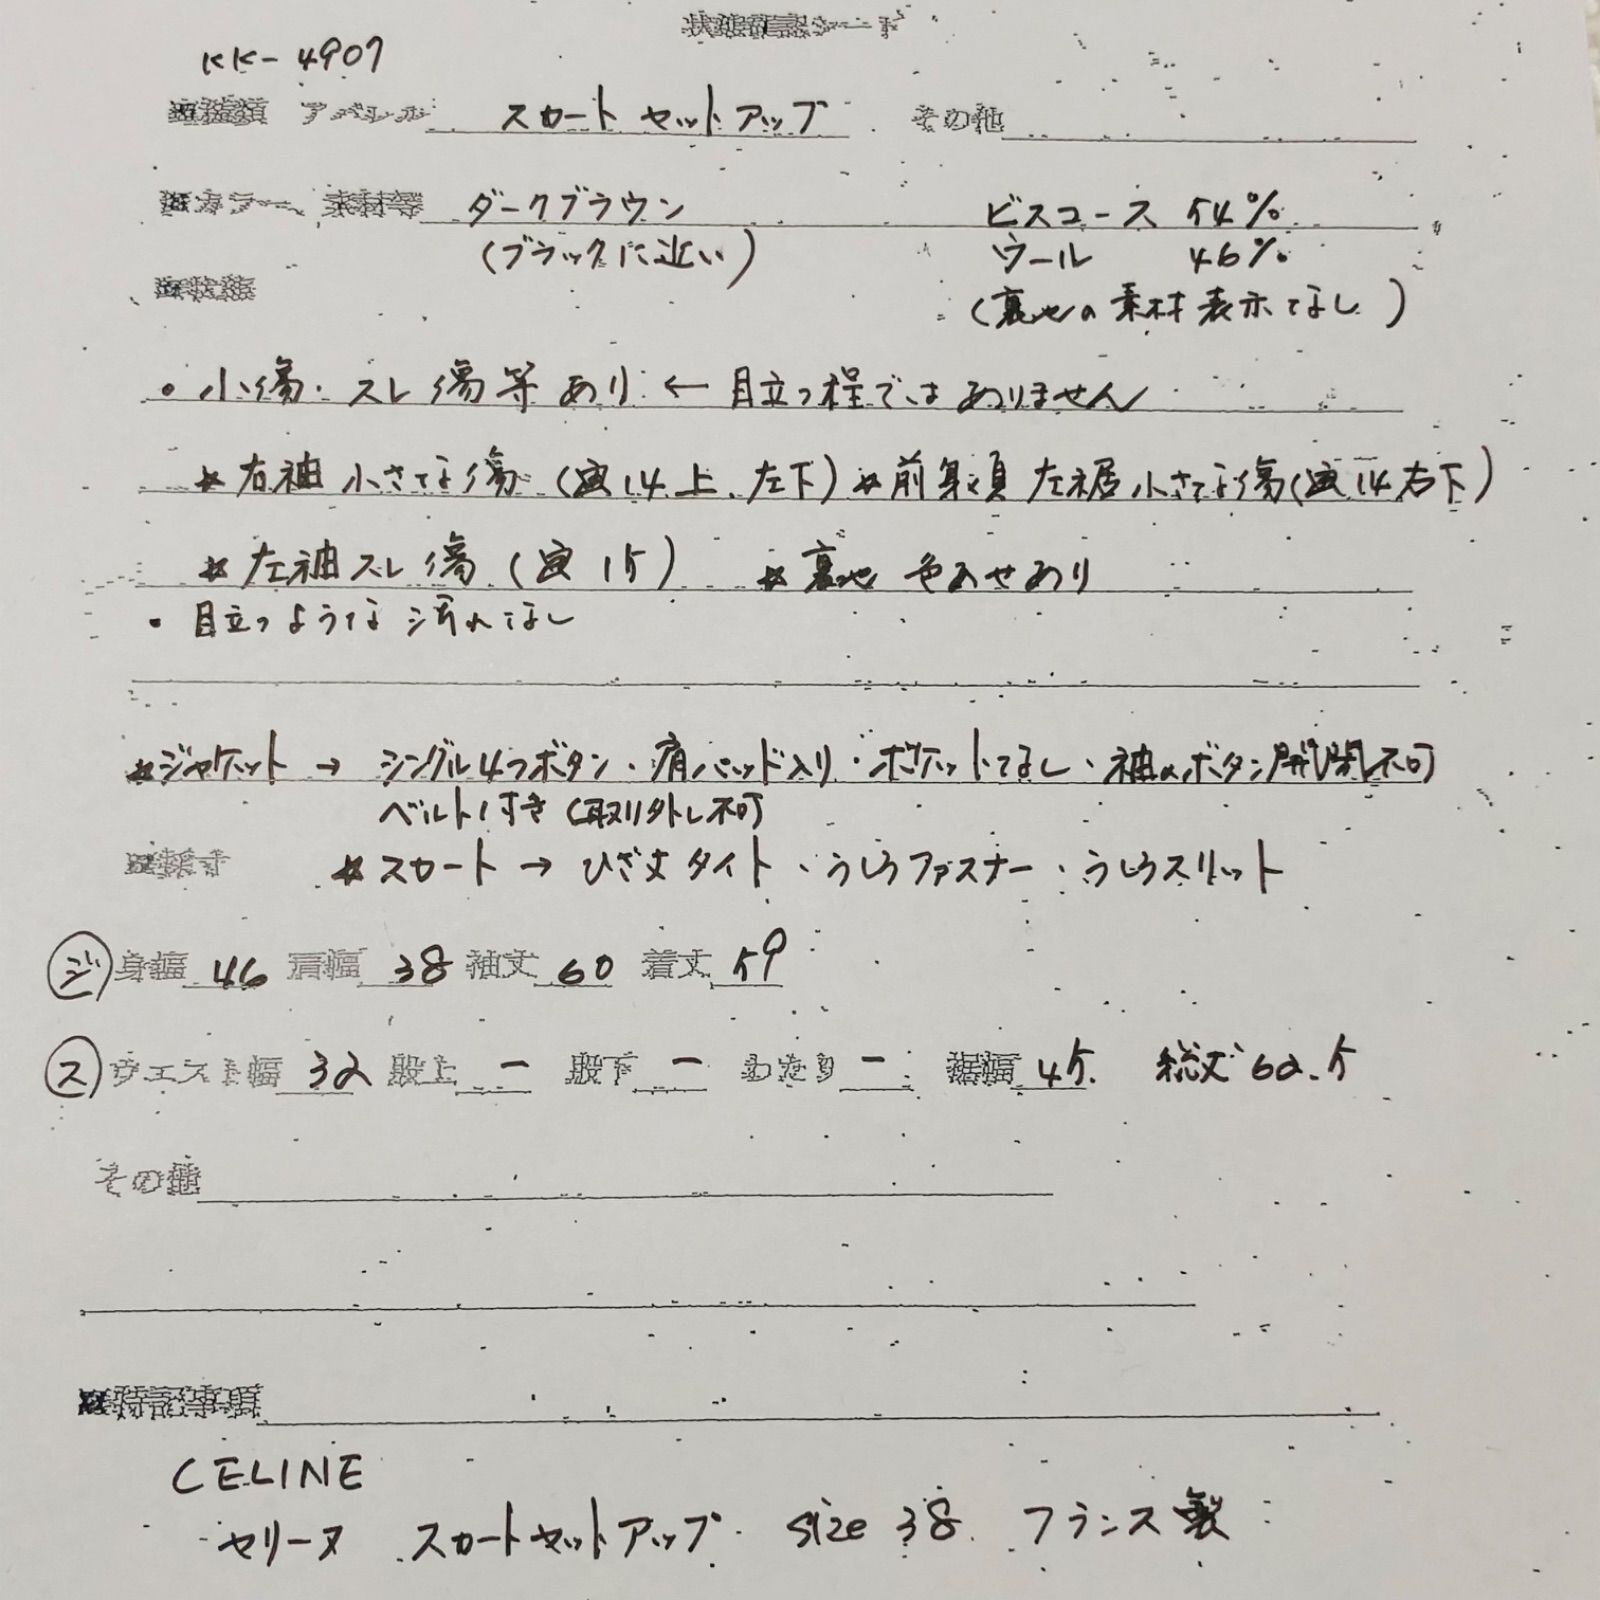 状態確認シート
KK-4907
■種類 アパレル スカートセットアップ その他
■カラー、素材等 ダークブラウン ビスコース 54%
(ブラックに近い) ウール 46%
■状態 (裏地の素材表示なし)
・小傷・スレ傷等あり ← 目立つ程ではありません
*右袖 小さな傷 (写14上、左下) *前身頃 左裾 小さな傷(写14右下)
*左袖スレ傷 (写15) *裏地 色あせあり
・目立つような汚れなし
*ジャケット → シングル4つボタン・肩パッド入り・ポケットなし・袖のボタン開閉不可
ベルト付き(取り外し不可)
■採寸 *スカート → ひざ丈タイト・うしろファスナー・うしろスリット
ジ 身幅 46 肩幅 38 袖丈 60 着丈 59
ス ウエスト幅 32 股上 ー 股下 ー わたり ー 裾幅 45. 総丈 62.5
その他
■特記事項
CELINE
セリーヌ スカートセットアップ size 38 フランス製